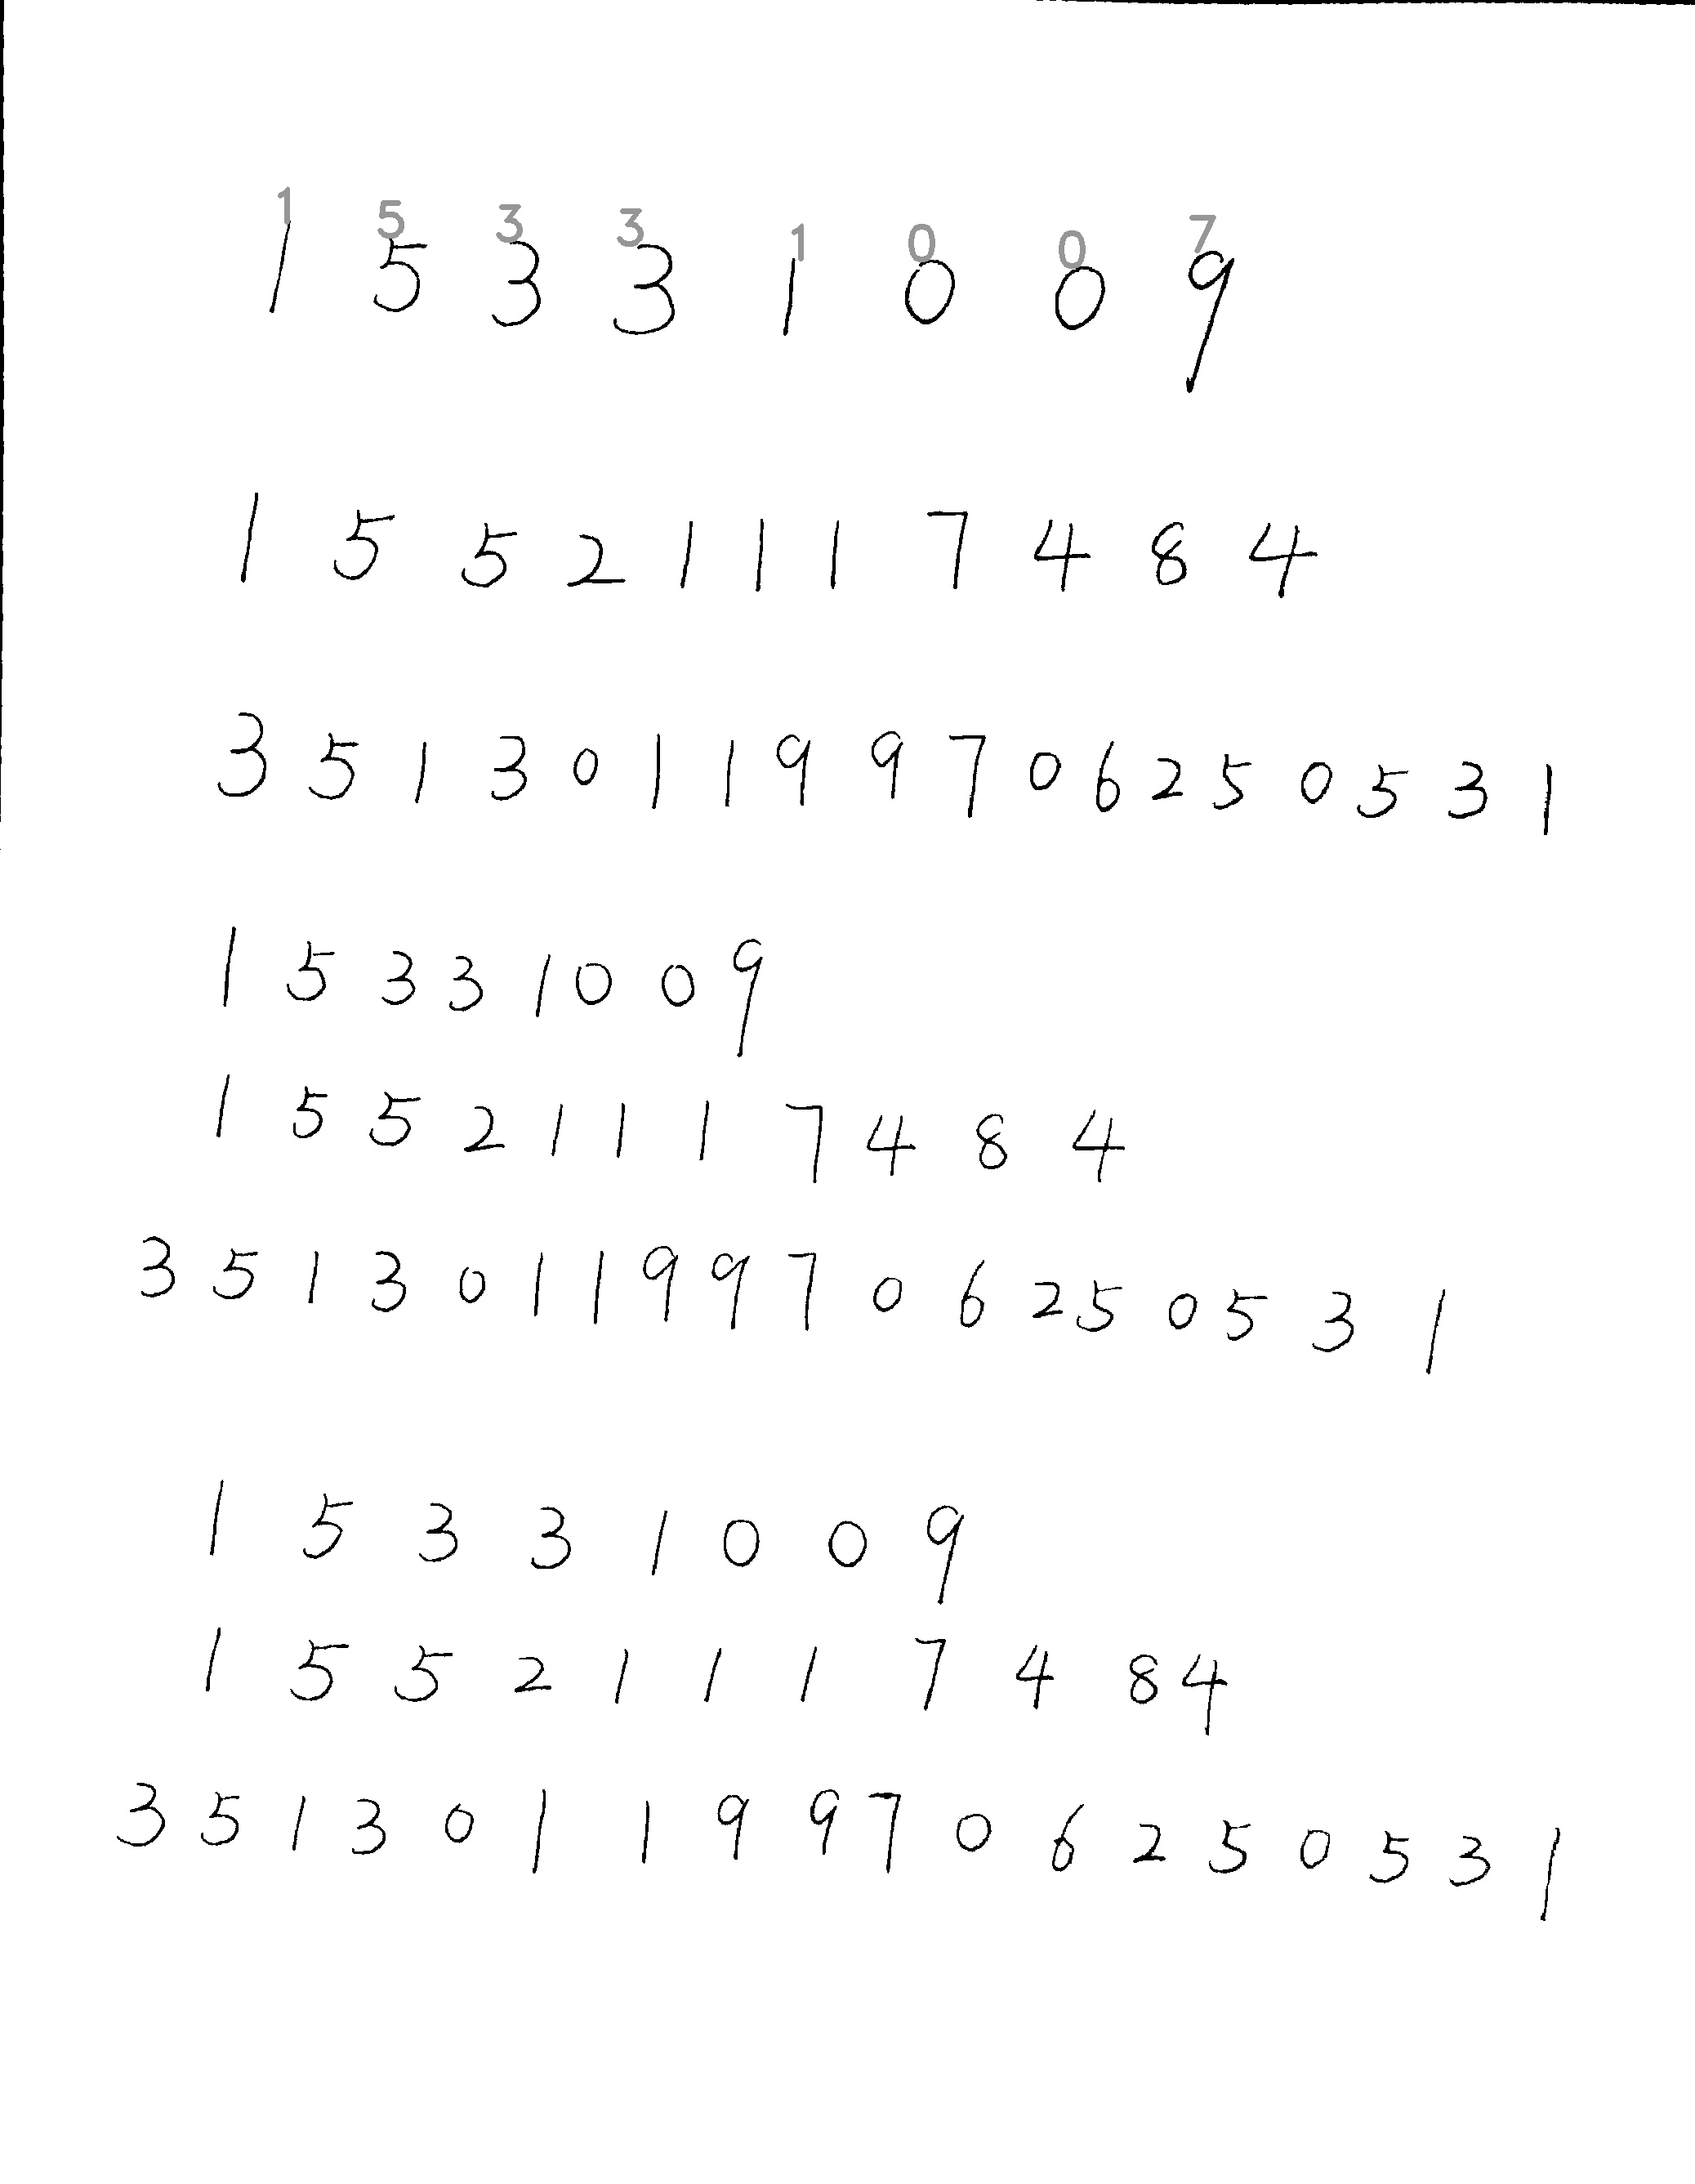 1 5 3 3 1 0 0 7
1 5 3 3 1 0 0 9
1 5 5 2 1 1 1 7 4 8 4
3 5 1 3 0 1 1 9 9 7 0 6 2 5 0 5 3 1
1 5 3 3 1 0 0 9
1 5 5 2 1 1 1 7 4 8 4
3 5 1 3 0 1 1 9 9 7 0 6 2 5 0 5 3 1
1 5 3 3 1 0 0 9
1 5 5 2 1 1 1 7 4 8 4
3 5 1 3 0 1 1 9 9 7 0 6 2 5 0 5 3 1